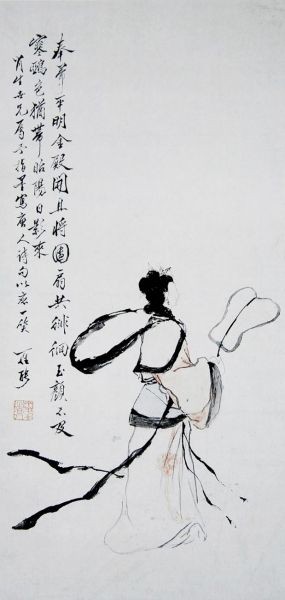 奉帚平明金殿開且將團扇共徘徊玉顏不及
寒鴉色猶帶昭陽日影來
生世兄屬指墨寫唐人詩句以應一